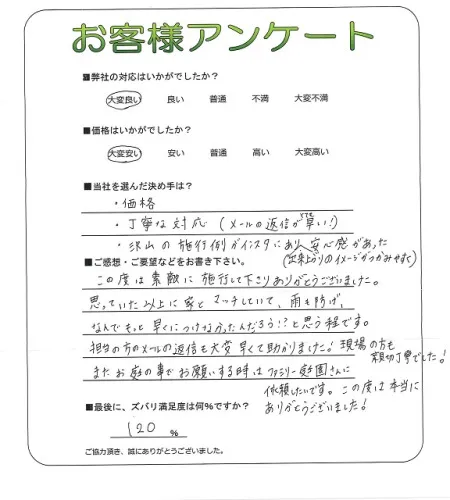 お客様アンケート
■弊社の対応はいかがでしたか?
大変良い 良い 普通 不満 大変不満
■価格はいかがでしたか?
大変安い 安い 普通 高い 大変高い
■当社を選んだ決め手は?
・価格
・丁寧な対応(メールの返信がとても早い!)
・沢山の施行例がインスタにあり、安心感があった
(出来上がりのイメージがつかみやすく)
■ご感想・ご要望などをお書き下さい。
この度は素敵に施行して下さりありがとうございました。
思っていた以上に家とマッチしていて、雨も防げ、
なんでもっと早くにつけなかったんだろう!?と思う程です。
担当の方のメールの返信も大変早くて助かりました!現場の方も
親切丁寧でした!
またお庭の事でお願いする時はファミリー庭園さんに
依頼したいです。この度は本当に
ありがとうございました!
■最後に、ズバリ満足度は何%ですか?
120 %
ご協力頂き、誠にありがとうございました。